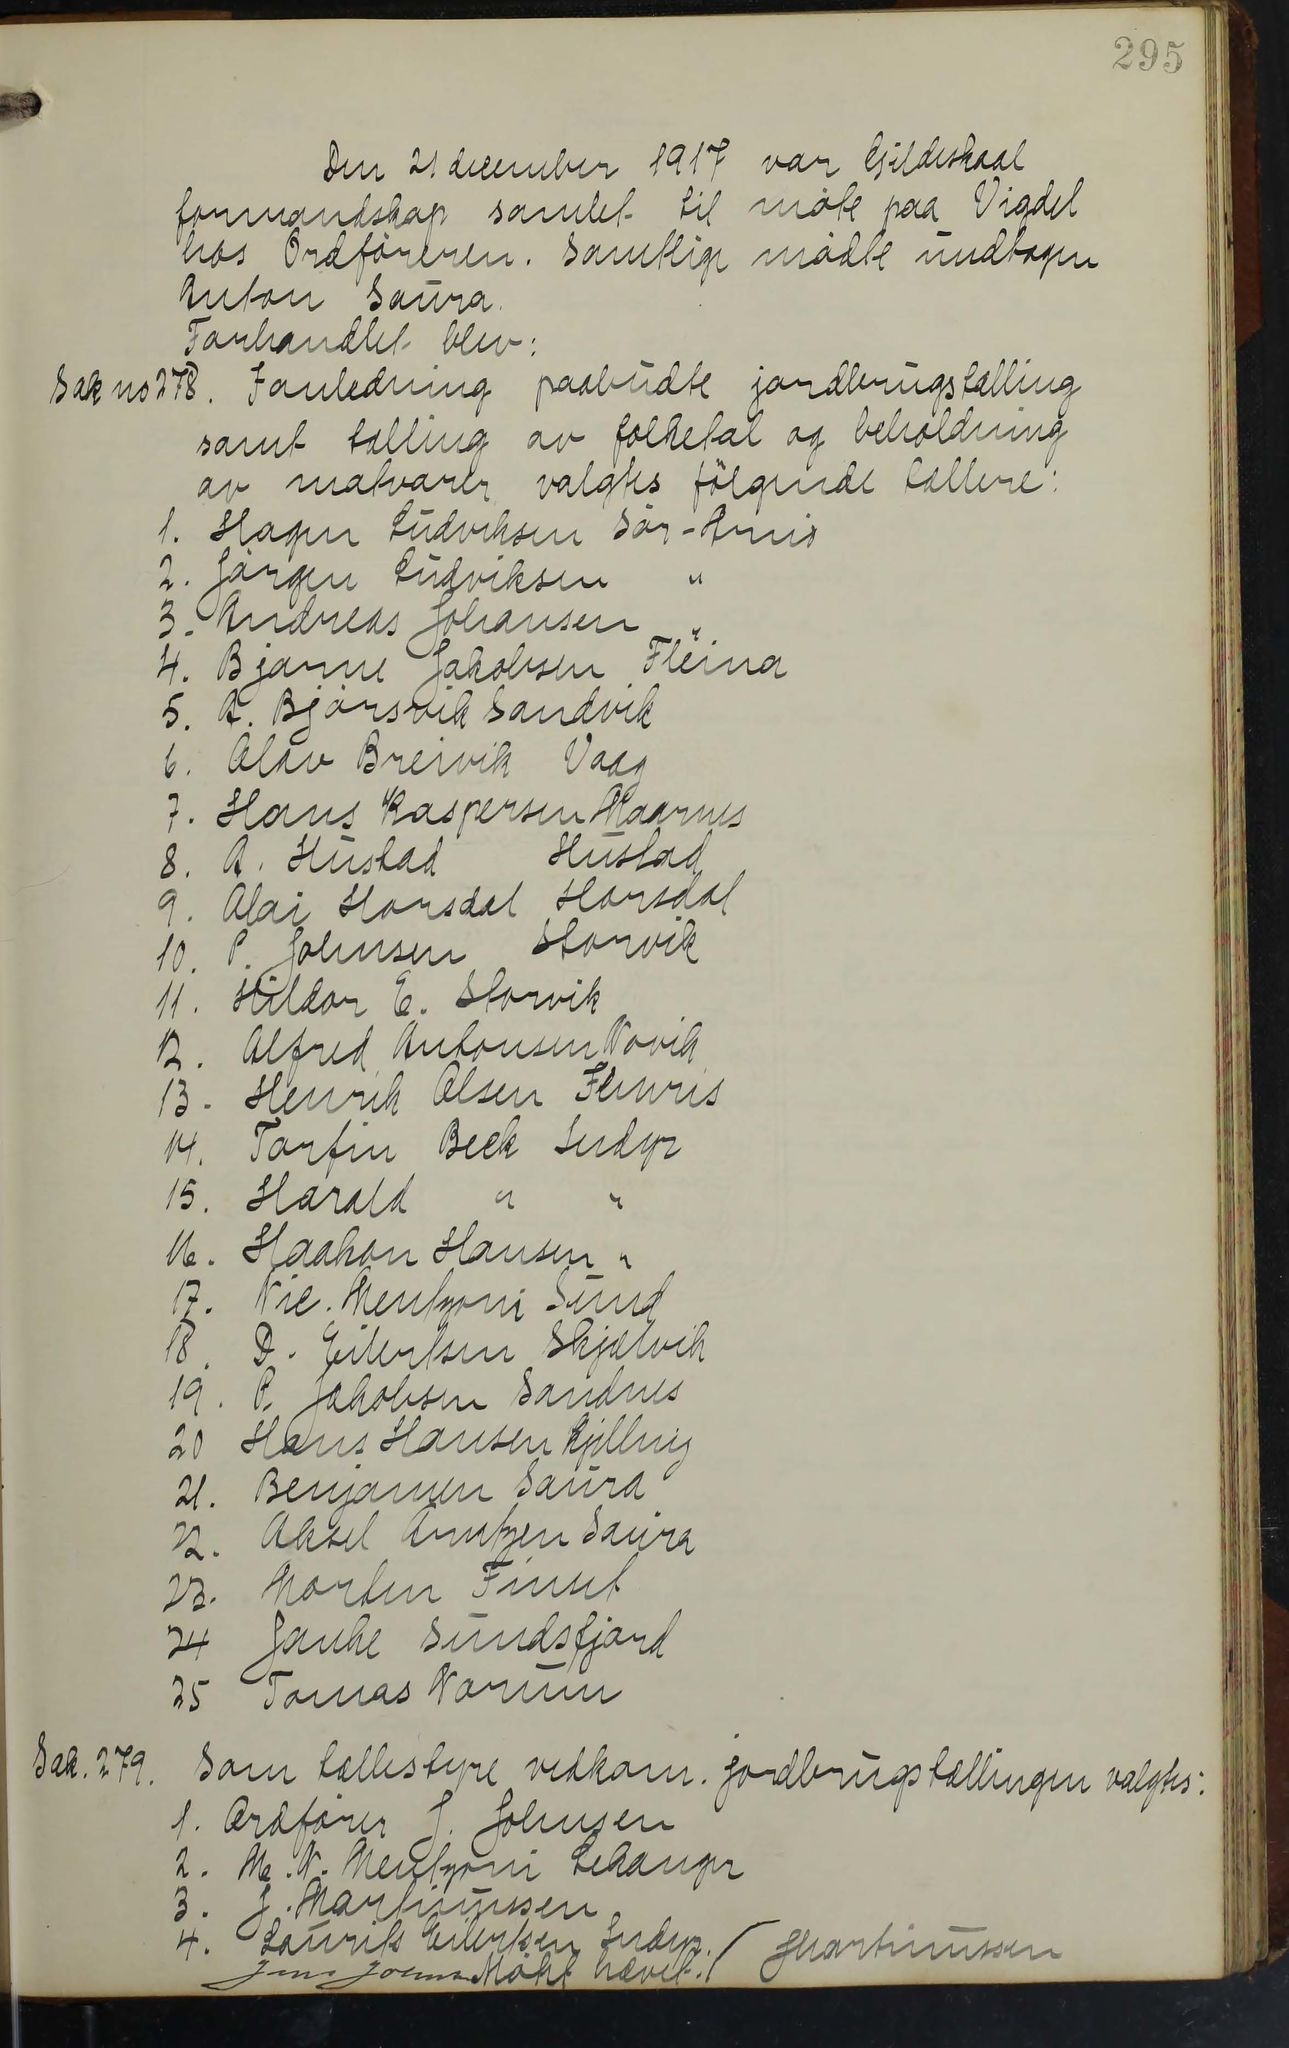 295
Den 21 december 1917 var Gjildeskaal
formandskap samlet til møte paa Vigdel
hos Ordføreren. Samtlige mødte undtagen
Anton Saura.
Forhandlet blev:
Sak no 278. Fanledning paabudte jordbrugstælling
samt tælling av folketal og beholdning
av matvarer valgtes følgende tællere:
1. Hagen Ludviksen Sør-Arnø
2. Jørgen Ludviksen "
3. Andreas Johansen "
4. Bjarne Jakobsen Fleina
5. A. Bjørsvik Sandvik
6. Olav Breivik Vaag
7. Hans Kaspersen Maarnes
8. A. Hustad Hustad
9. Olai Horsdal Horsdal
10. P. Johnsen Storvik
11. Hildor E. Storvik
12. Alfred Antonsen Novik
13. Henrik Olsen
14. Torfin Beck Indyr
15. Harald " "
16. Haakon Hansen "
17. Nic. Mentzoni Sund
18. D. Eilertsen Skjælvik
19. P. Jakobsen Sandnes
20 Hans Hansen
21. Benjamen Saura
22. Aksel Arntzen Saura
23. Morten Finset
24 Sundsfjord
25 Tomas Norum
Sak. 279. Som tællestyre vedkom. jordbrugstællingen valgtes:
1. Ordfører J. Johnsen
2. M. N. Mentzoni Lekanger
3. J. Martinussen
4. Laurits Eilertsen Indyr. / JMartinussen
Jens Johns Møtet hævet.